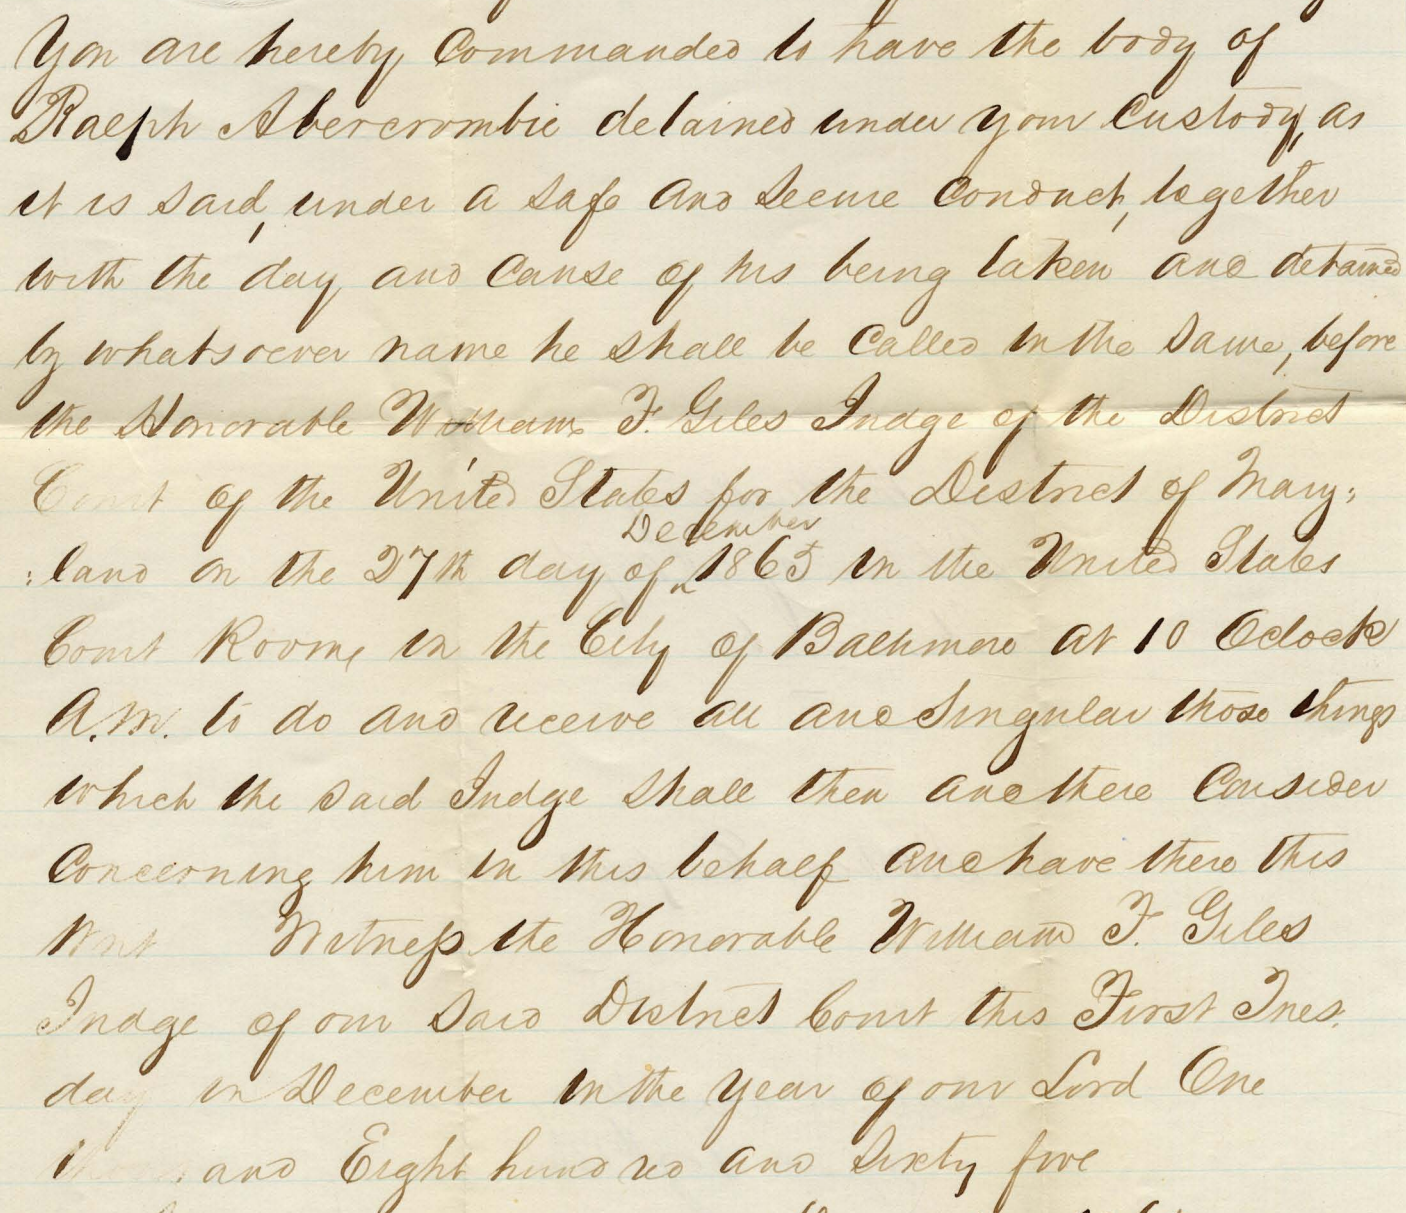 You are hereby Commanded to have the body of
Ralph Abercrombie detained under your Custody, as
it is said, under a safe and secure Conduct, together
with the day and Cause of his being taken and detained
by whatsoever name he shall be Called in the same, before
the Honorable William F. Giles Judge of the District
Court of the United States for the District of Mary:
December
:land on the 27th day of ‸ 1865 in the United States
Court Room, in the City of Baltimore at 10 Oclock
A.M. to do and receive all and Singular those things
which the said Judge shall then and there Consider
Concerning him in this behalf and have there this
Writ Witness the Honorable William F. Giles
Judge of our said District Court this First Tues.
day in December in the year of our Lord One
thousand Eight hundred and Sixty five